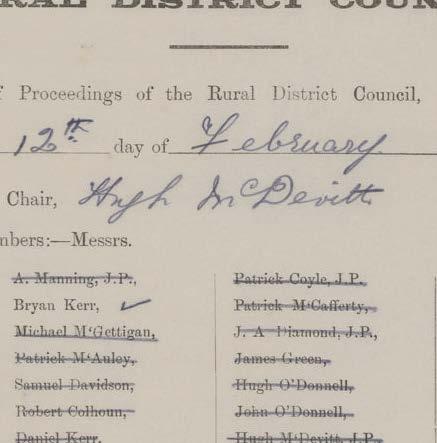 RAL DISTRICT COUN
f Proceedings of the Rural District Council,
12th day of February
Chair, Hugh McDevitt
mbers:—Messrs.
A. Manning, J.P.,
Bryan Kerr, ✓
Michael M'Gettigan,
Patrick M'Auley,
Samuel Davidson,
Robert Colhoun,
Daniel Kerr,
Patrick Coyle, J.P.
Patrick M'Cafferty,
J. A Diamond, J.P.,
James Green,
Hugh O'Donnell,
John O'Donnell,
Hugh M'Devitt, J.P.